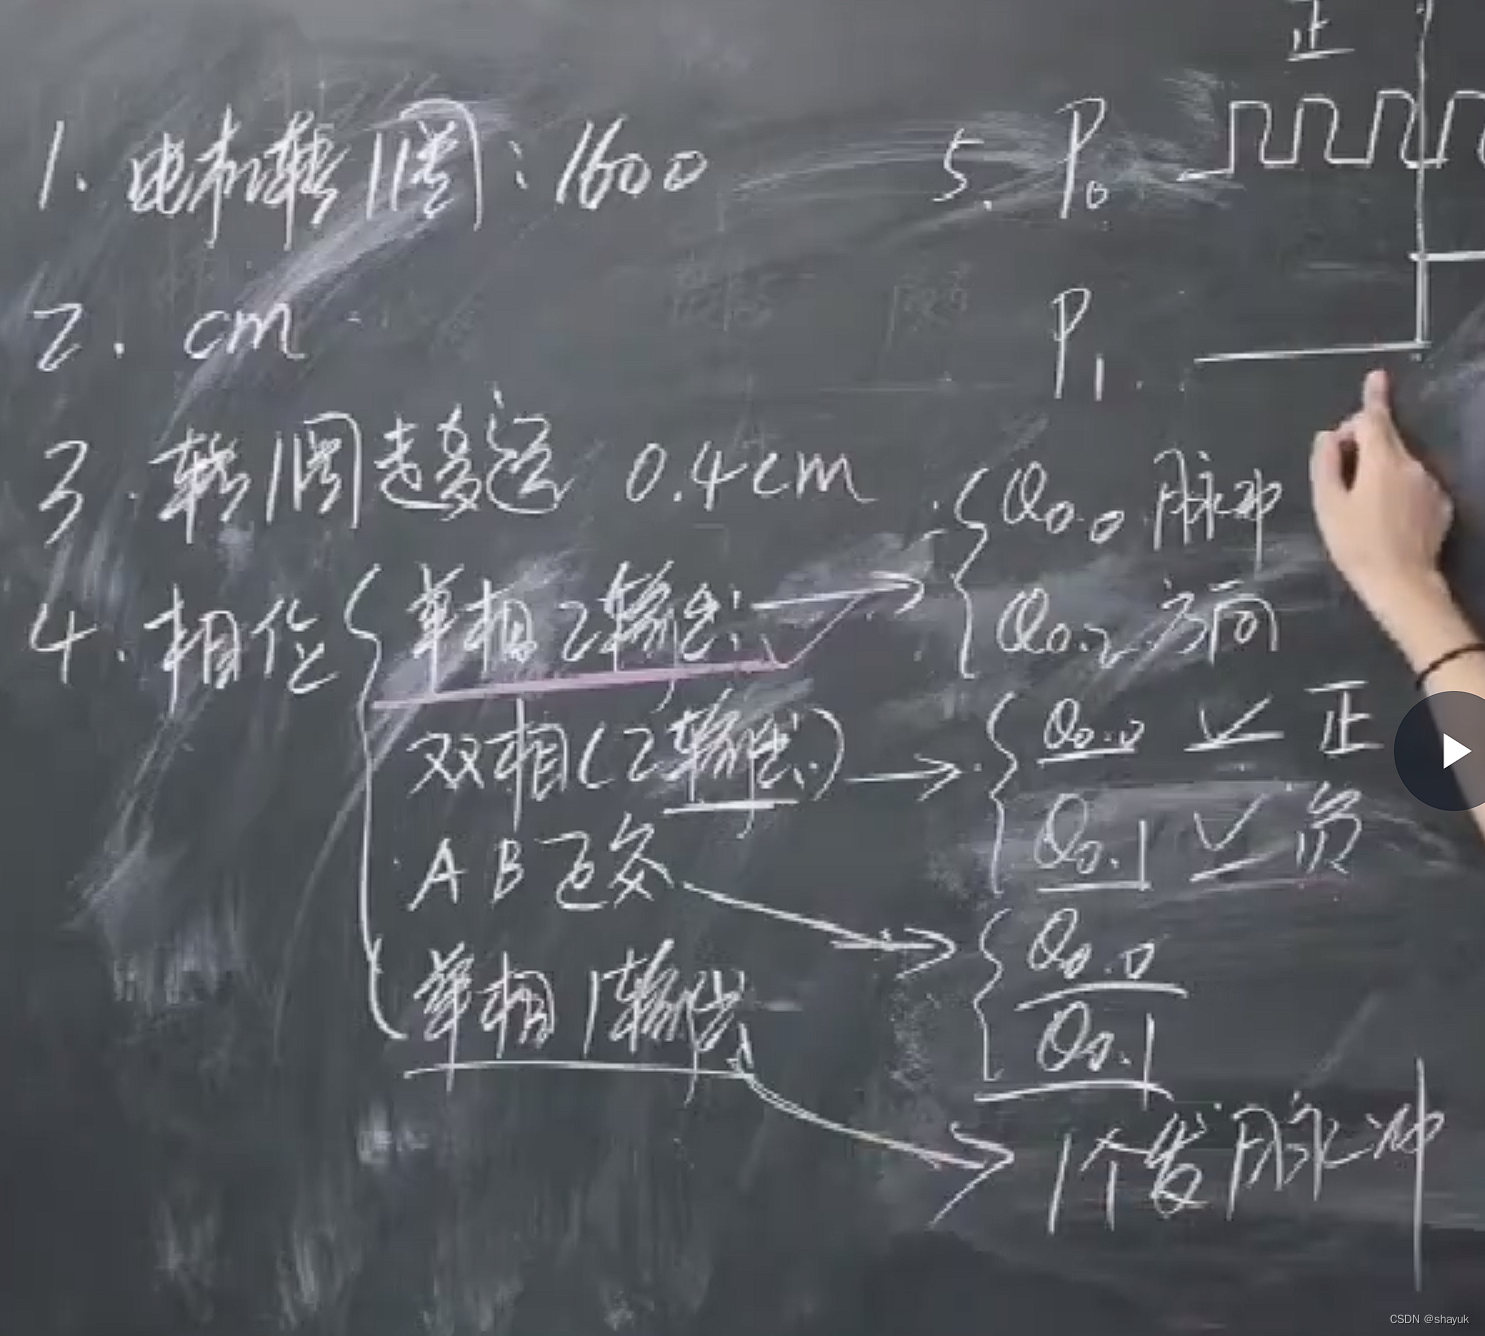 1. 电机转1圈: 1600
2. cm
3. 转1圈走多远 0.4cm
4. 相位
单相2输出
Q0.0 脉冲
Q0.2 方向
双相(2输出)
Q0.0 正
Q0.1 负
AB正交
Q0.0
Q0.1
单相1输出
1个发脉冲
5. P0
正
P1
CSDN @shayuk